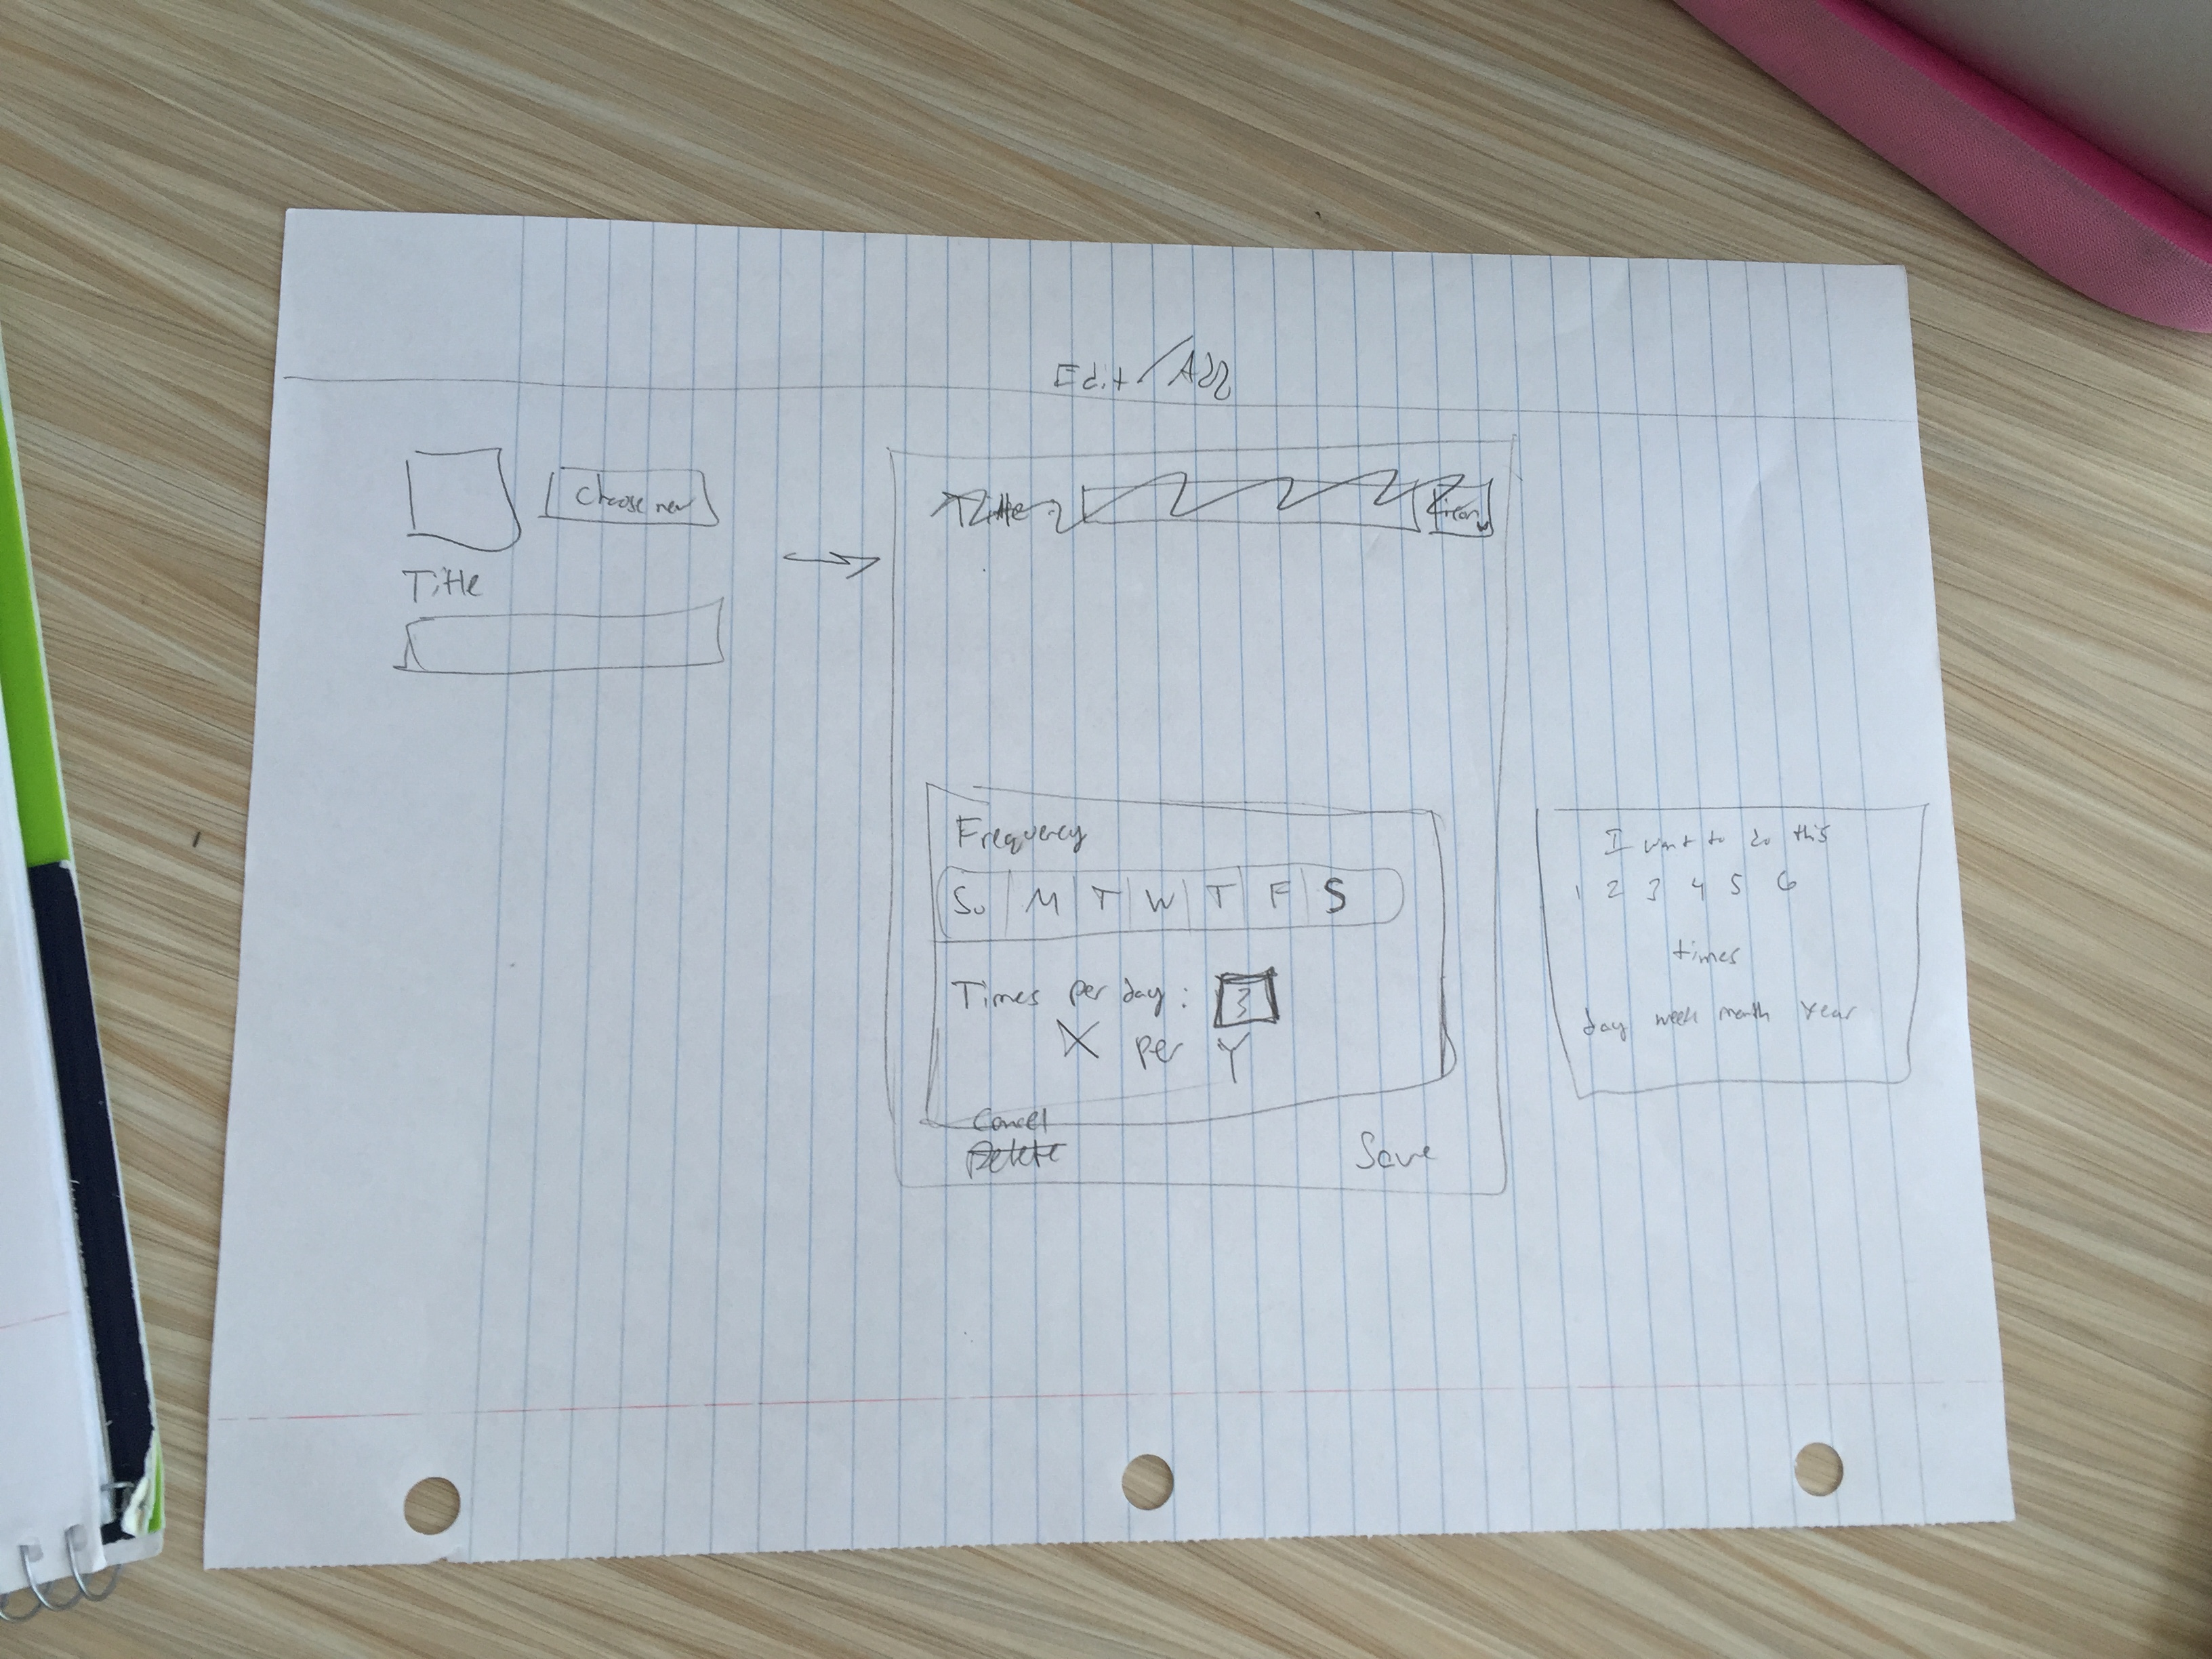 Edit/Add
Choose new
Title
Title:
Icon
Frequency
Su M T W T F S
Times per day: 3
X per Y
Cancel
Delete
Save
I want to do this
1 2 3 4 5 6
times
day week month year